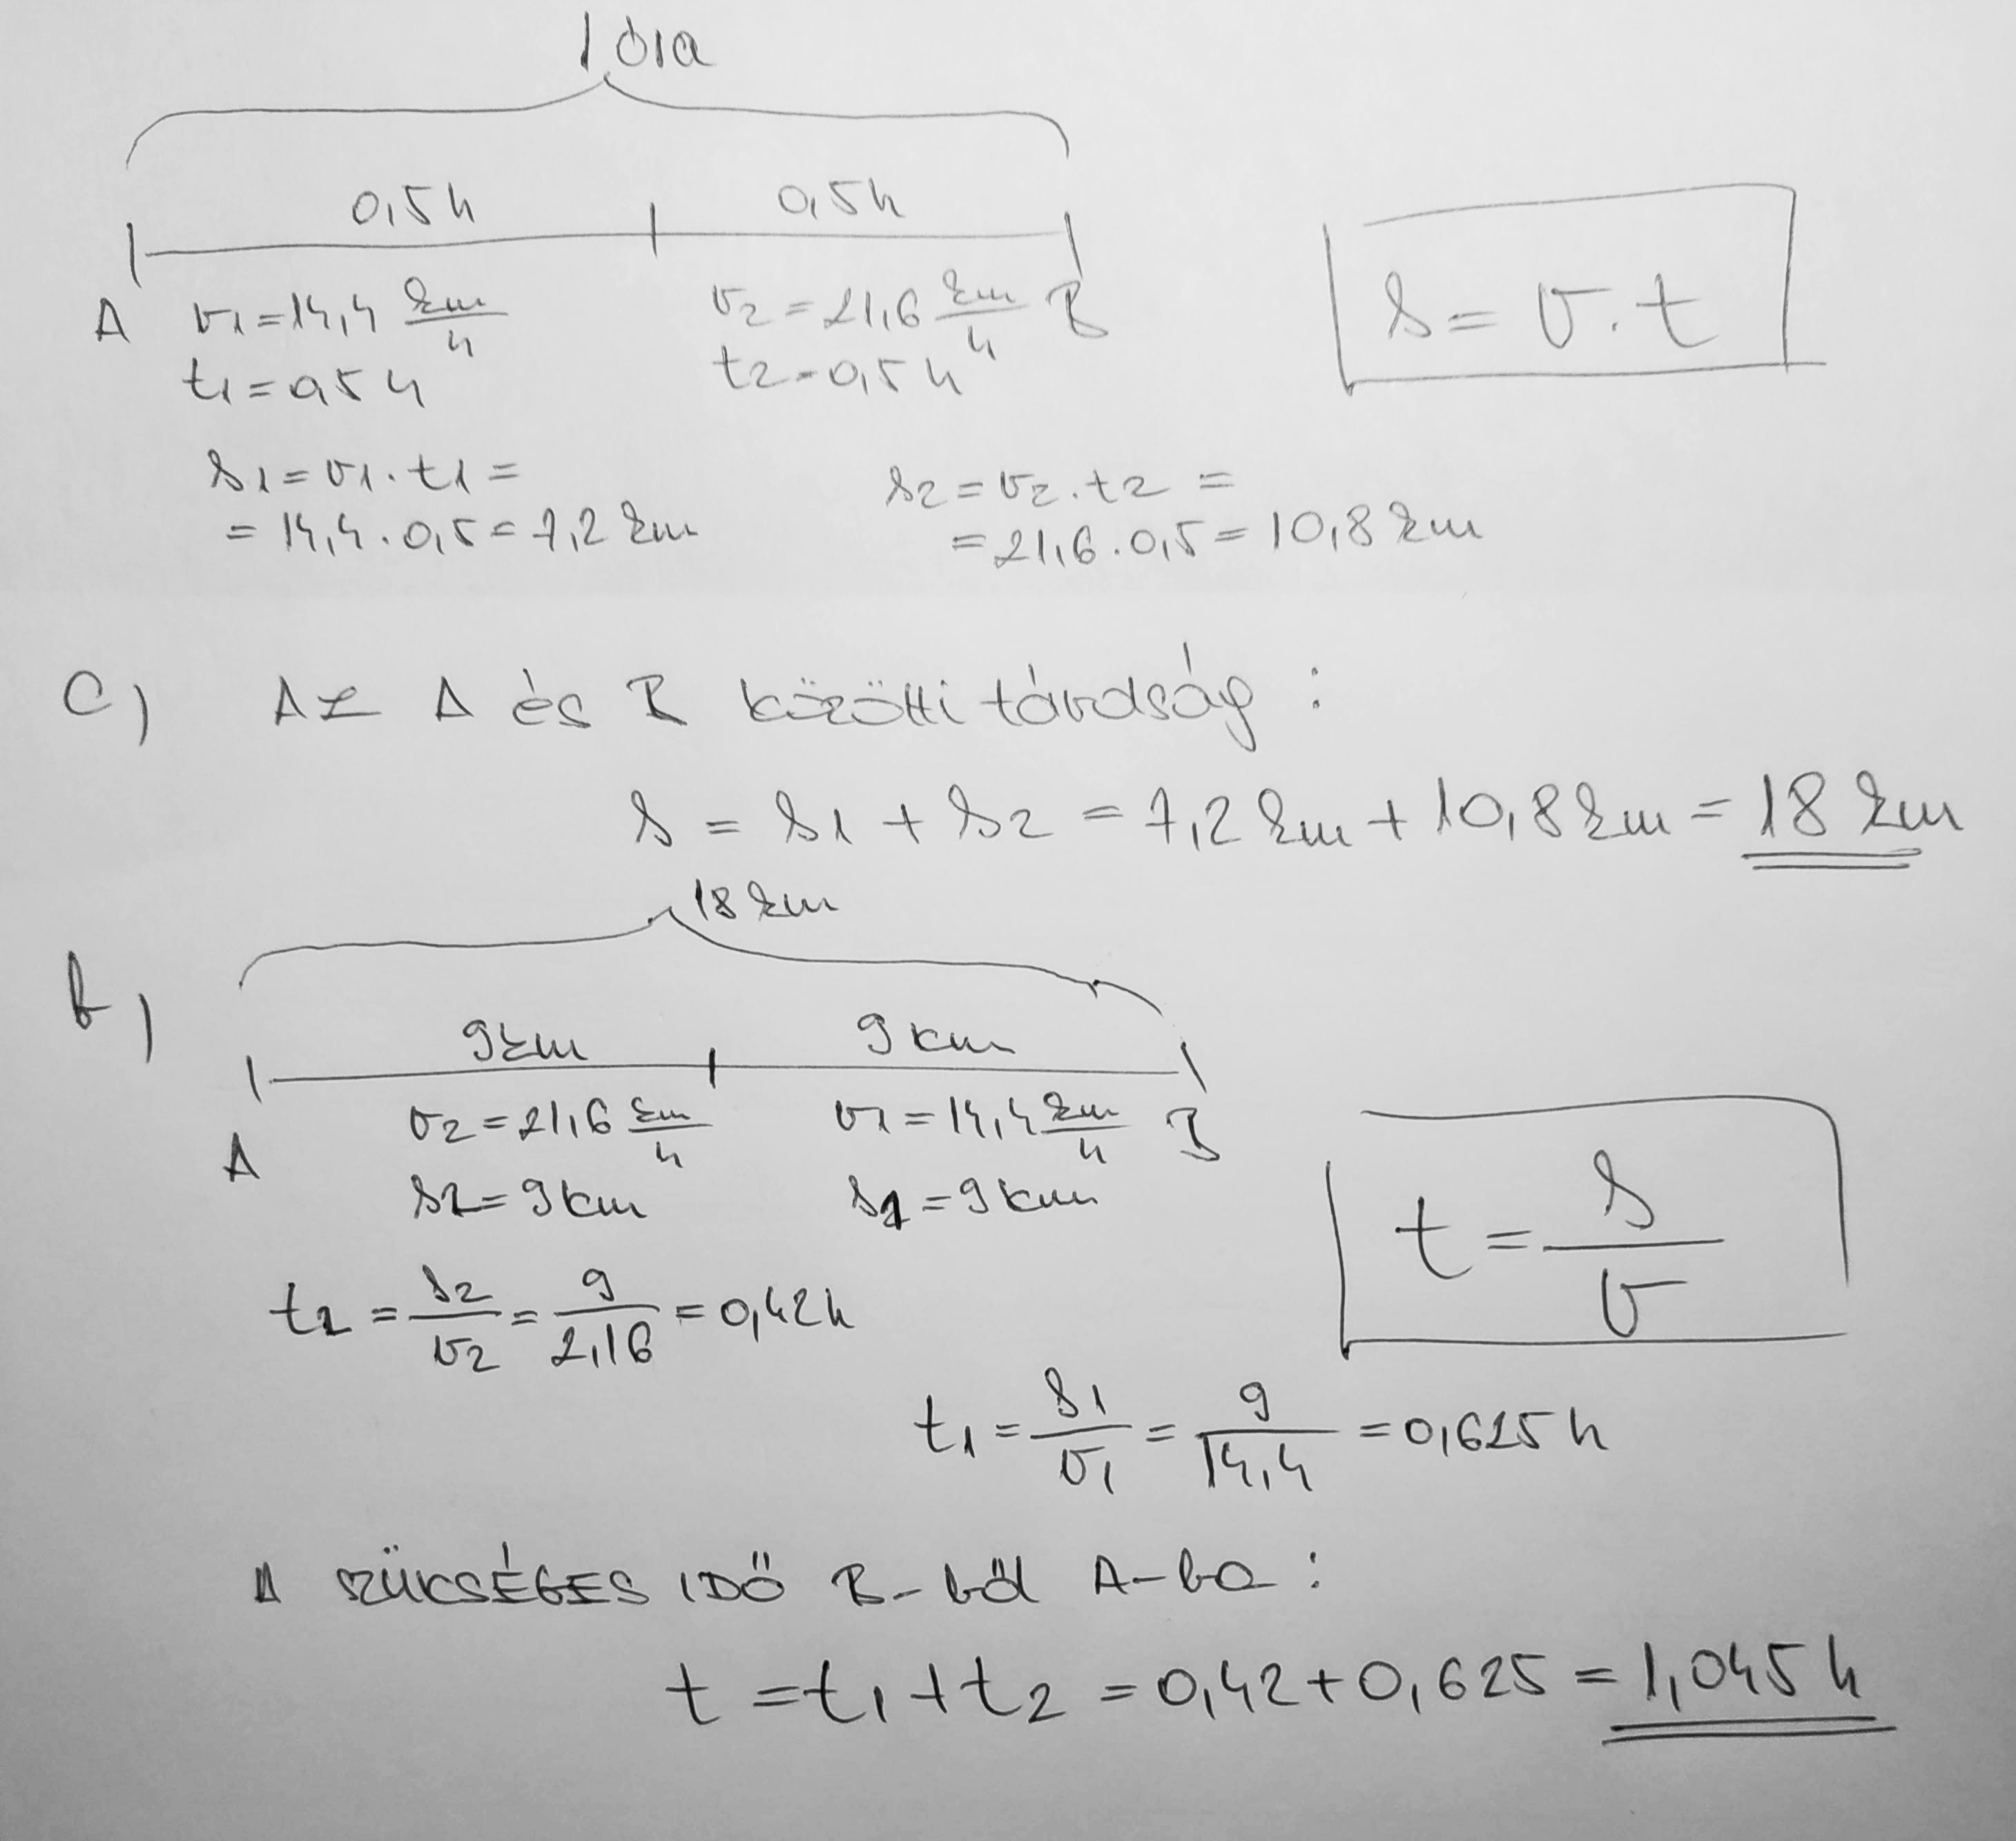 1 óra
0,5h 0,5h
A v1=14,4 km/h v2=21,6 km/h B
t1=0,5h t2=0,5h
s=v·t
s1=v1·t1=
=14,4·0,5=7,2km
s2=v2·t2=
=21,6·0,5=10,8km
c) AZ A és B közötti távolság:
s = s1 + s2 = 7,2km + 10,8km = 18 km
18km
b)
9km 9km
A v2=21,6 km/h v1=14,4 km/h B
s2=9km s1=9km
t=s/v
t2=s2/v2=9/2,16=0,42h
t1=s1/v1=9/14,4=0,625h
A SZÜKSÉGES IDŐ B-ből A-ba:
t=t1+t2=0,42+0,625=1,045h